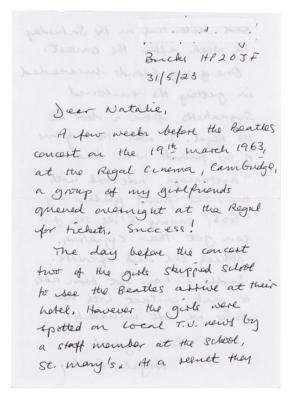 Bucks HP20 3JF
31/5/23
Dear Natalie,
A few weeks before the Beatles
concert on the 19th March 1963,
at the Regal Cinema, Cambridge,
a group of my girlfriends
queued overnight at the Regal
for tickets. Success!
The day before the concert
two of the girls skipped school
to see the Beatles arrive at their
hotel. However the girls were
spotted on Local T.V. news by
a staff member at the school,
St. Mary's. As a result they